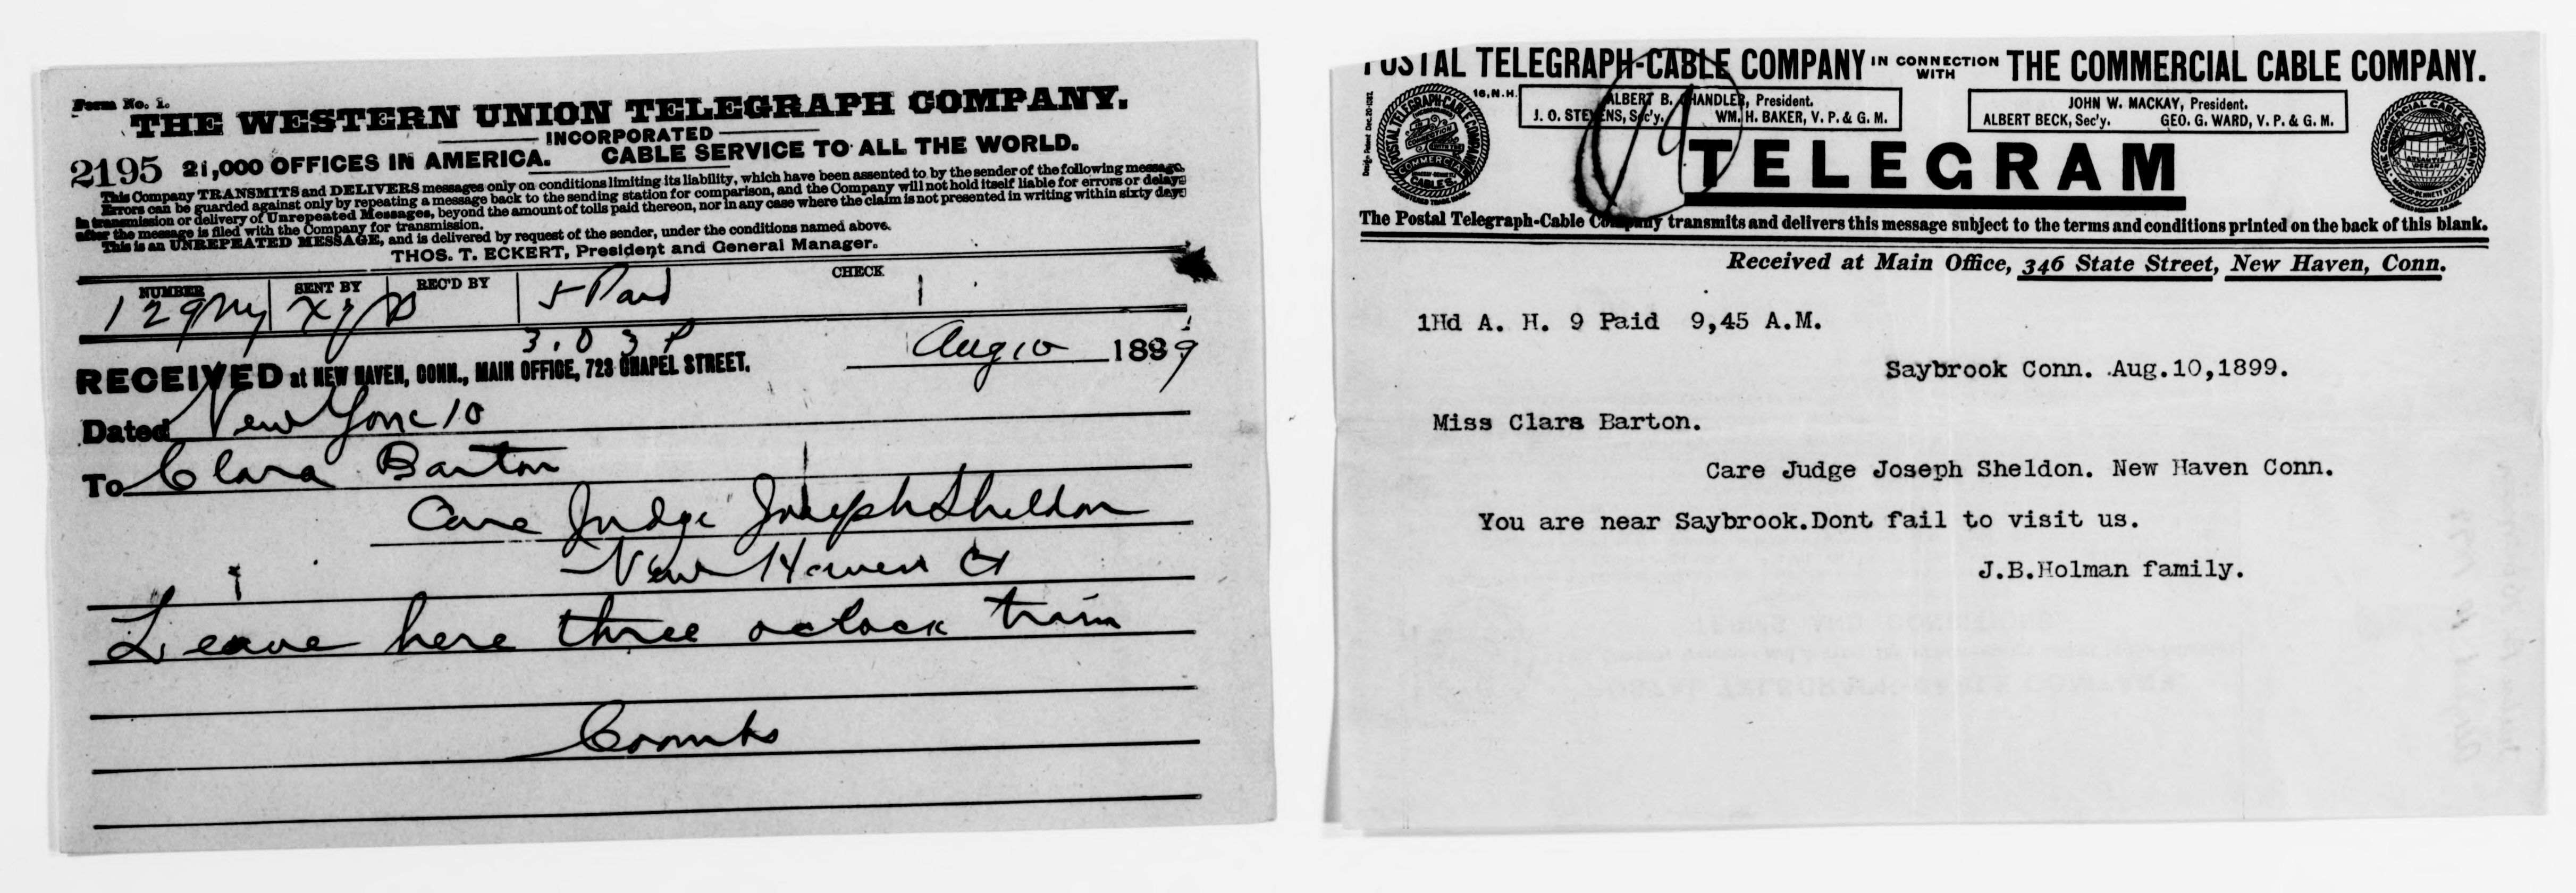 Form No. 1.
THE WESTERN UNION TELEGRAPH COMPANY.
INCORPORATED
2195 21,000 OFFICES IN AMERICA. CABLE SERVICE TO ALL THE WORLD.
This Company TRANSMITS and DELIVERS messages only on conditions limiting its liability, which have been assented to by the sender of the following message.
Errors can be guarded against only by repeating a message back to the sending station for comparison, and the Company will not hold itself liable for errors or delays
in transmission or delivery of Unrepeated Messages, beyond the amount of tolls paid thereon, nor in any case where the claim is not presented in writing within sixty days
after the message is filed with the Company for transmission.
This is an UNREPEATED MESSAGE, and is delivered by request of the sender, under the conditions named above.
THOS. T. ECKERT, President and General Manager.
NUMBER SENT BY REC'D BY CHECK
129 Ny 5 Paid
3.03 P
RECEIVED at NEW HAVEN, CONN., MAIN OFFICE, 723 CHAPEL STREET. Aug 10 1899
Dated New York 10
To Clara Barton
Care Judge Joseph Sheldon
New Haven Ct
Leave here three oclock train
Coombs
POSTAL TELEGRAPH-CABLE COMPANY IN CONNECTION WITH THE COMMERCIAL CABLE COMPANY.
16, N.H.
ALBERT B. CHANDLER, President.
J. O. STEVENS, Sec'y. WM. H. BAKER, V. P. & G. M.
JOHN W. MACKAY, President.
ALBERT BECK, Sec'y. GEO. G. WARD, V. P. & G. M.
TELEGRAM
The Postal Telegraph-Cable Company transmits and delivers this message subject to the terms and conditions printed on the back of this blank.
Received at Main Office, 346 State Street, New Haven, Conn.
1Hd A. H. 9 Paid 9,45 A.M.
Saybrook Conn. Aug.10,1899.
Miss Clara Barton.
Care Judge Joseph Sheldon. New Haven Conn.
You are near Saybrook.Dont fail to visit us.
J.B.Holman family.